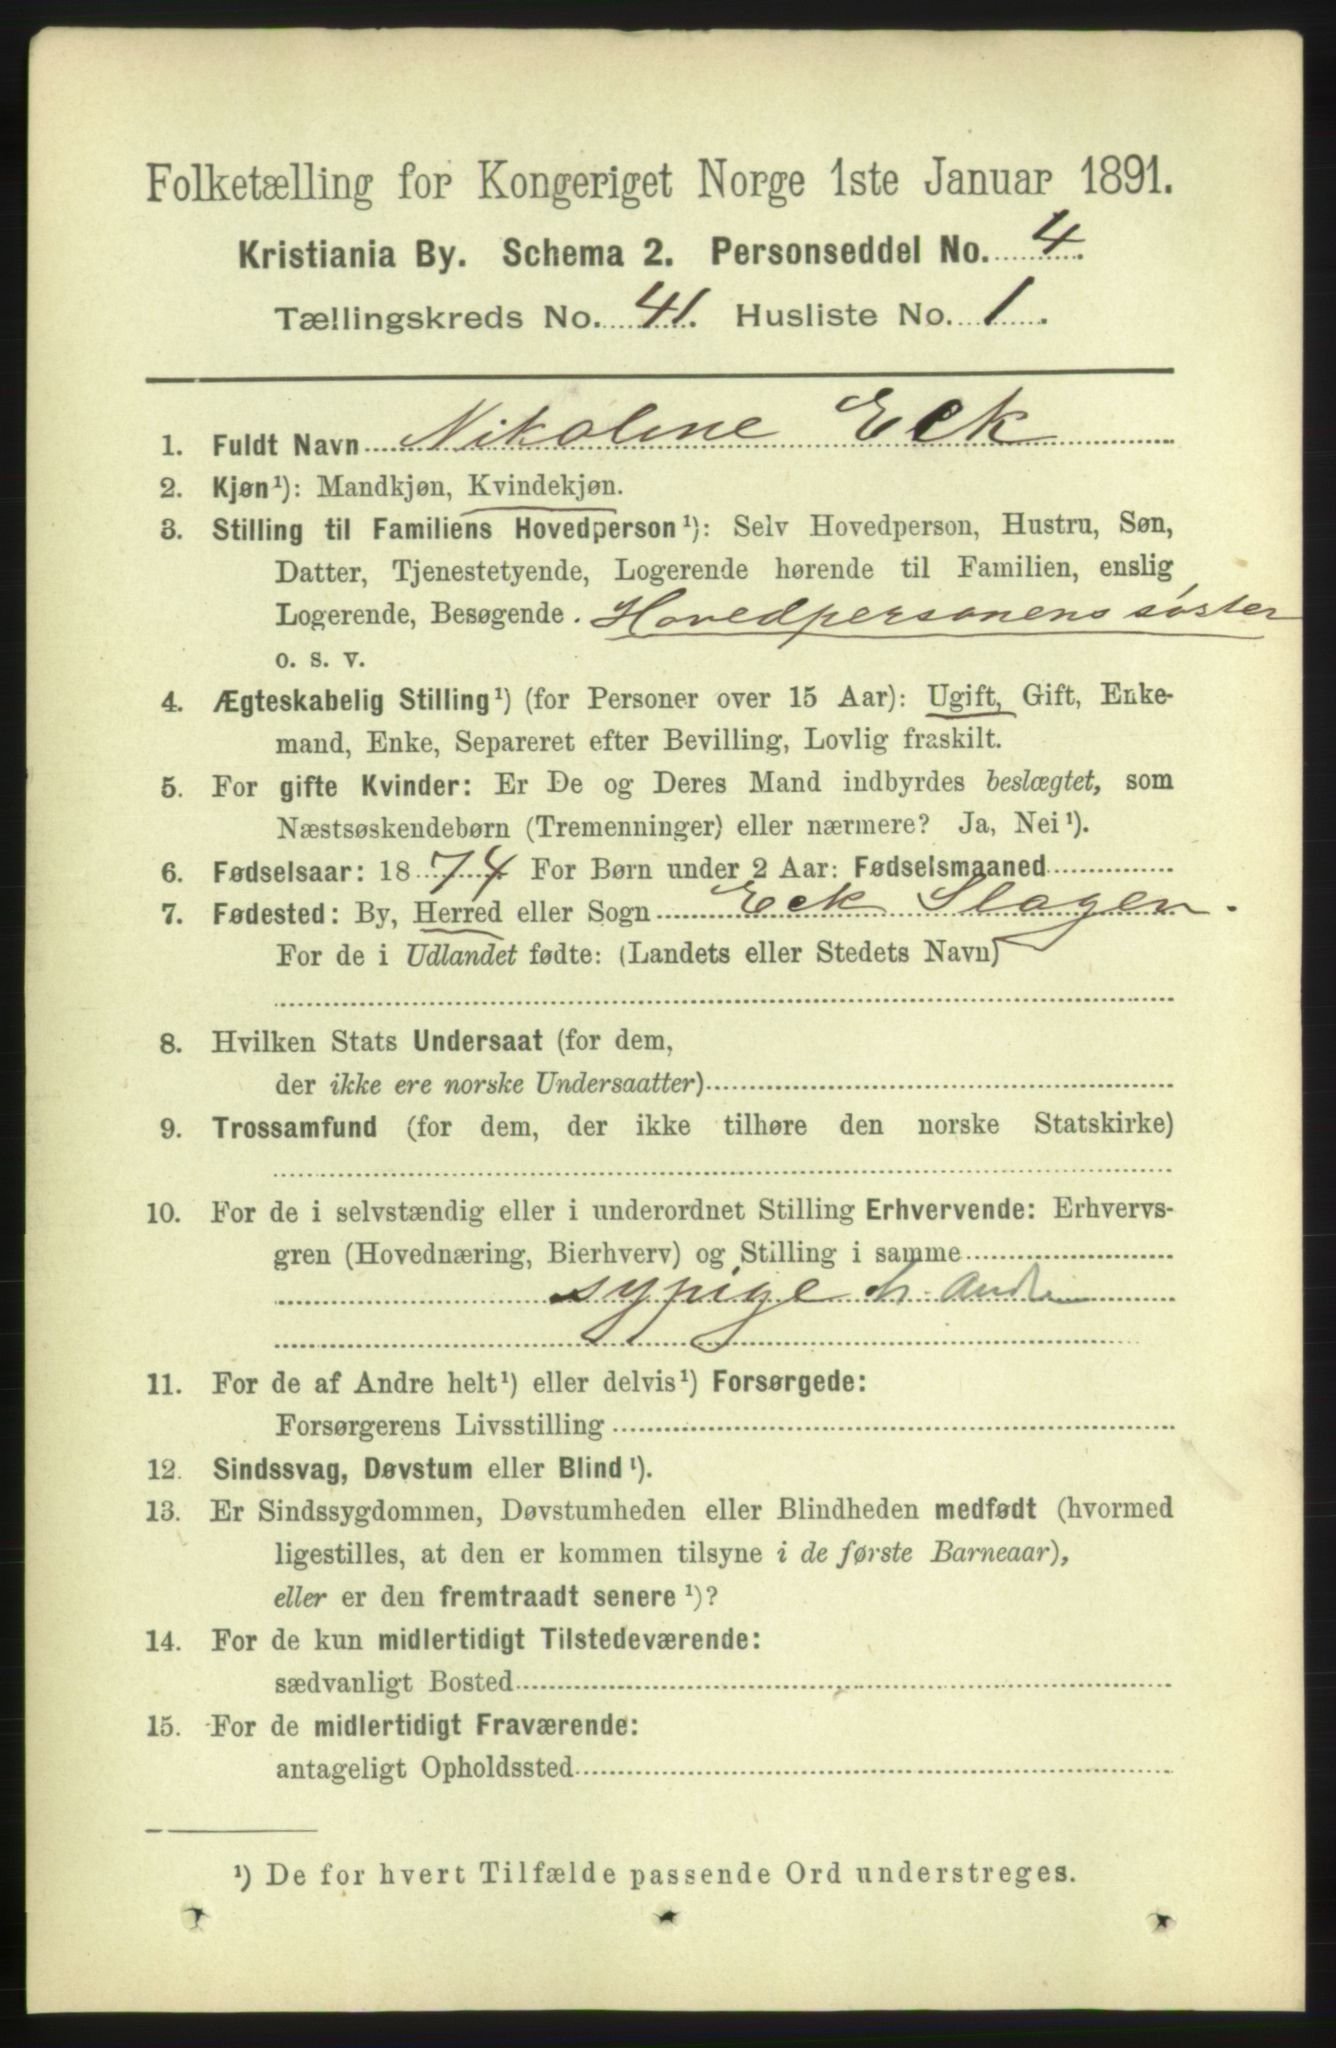 Folketælling for Kongeriget Norge 1ste Januar 1891.
Kristiania By. Schema 2. Personseddel No. 4.
Tællingskreds No. 41. Husliste No. 1.
1. Fuldt Navn Nikoline Eek
2. Kjøn¹): Mandkjøn, Kvindekjøn.
3. Stilling til Familiens Hovedperson¹): Selv Hovedperson, Hustru, Søn,
Datter, Tjenestetyende, Logerende hørende til Familien, enslig
Logerende, Besøgende. Hovedpersonens søster
o. s. v.
4. Ægteskabelig Stilling¹) (for Personer over 15 Aar): Ugift, Gift, Enke-
mand, Enke, Separeret efter Bevilling, Lovlig fraskilt.
5. For gifte Kvinder: Er De og Deres Mand indbyrdes beslægtet, som
Næstsøskendebørn (Tremenninger) eller nærmere? Ja, Nei¹).
6. Fødselsaar: 1874 For Børn under 2 Aar: Fødselsmaaned
7. Fødested: By, Herred eller Sogn Eek Slagen.
For de i Udlandet fødte: (Landets eller Stedets Navn)
8. Hvilken Stats Undersaat (for dem,
der ikke ere norske Undersaatter)
9. Trossamfund (for dem, der ikke tilhøre den norske Statskirke)
10. For de i selvstændig eller i underordnet Stilling Erhvervende: Erhvervs-
gren (Hovednæring, Bierhverv) og Stilling i samme
sypige
11. For de af Andre helt¹) eller delvis¹) Forsørgede:
Forsørgerens Livsstilling
12. Sindssvag, Døvstum eller Blind¹).
13. Er Sindssygdommen, Døvstumheden eller Blindheden medfødt (hvormed
ligestilles, at den er kommen tilsyne i de første Barneaar),
eller er den fremtraadt senere¹)?
14. For de kun midlertidigt Tilstedeværende:
sædvanligt Bosted
15. For de midlertidigt Fraværende:
antageligt Opholdssted
¹) De for hvert Tilfælde passende Ord understreges.